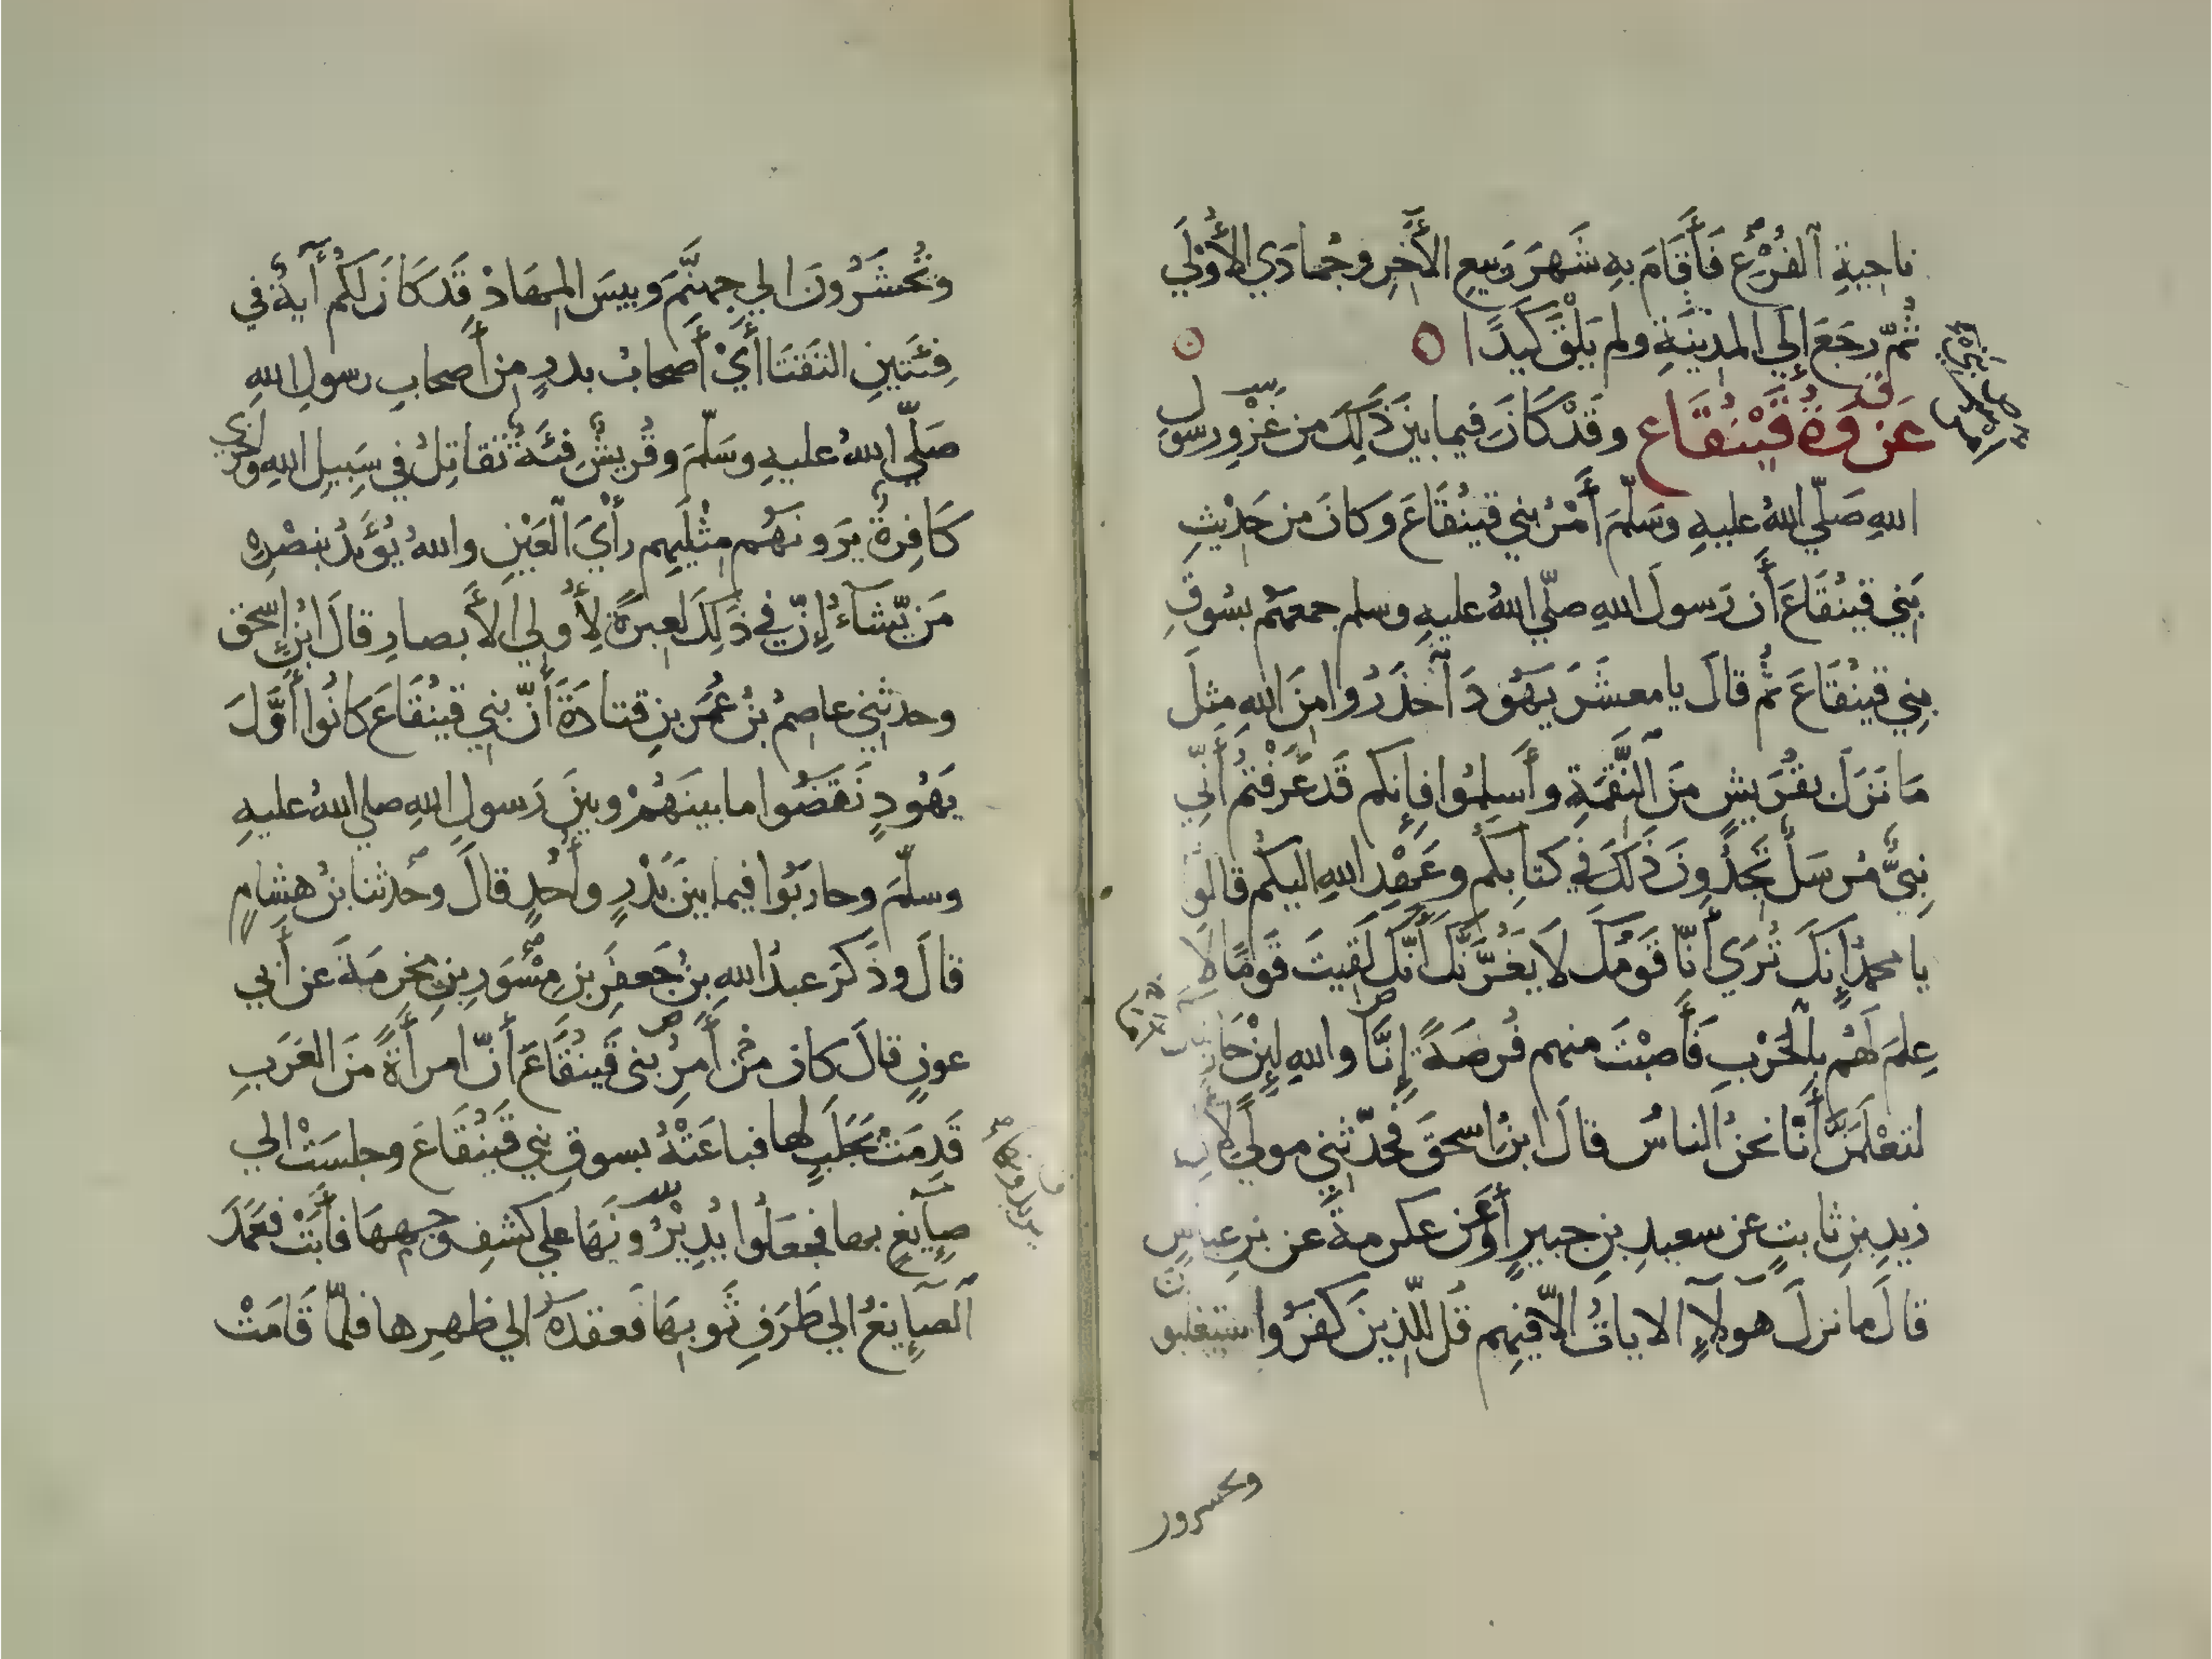 ناحيةِ الفُرُعِ فَأَقَامَ بِهِ شَهرَ رَبيعِ الأَخِرِ وجُمادَي الأُوْلَي
ثُمّ رجَعَ إلَي المدِيْنَةِ ولم يَلْقَ كَيدًا
غَزوَةُ قَيْنُقَاع وقَدْ كَانَ فيما بينَ ذَلِكَ من غَزْوِ رسول
اللهِ صَلّي اللهُ عليهِ وسَلّمَ أَمْرُ بني قينُقَاعَ وكانَ من حَدِيْثِ
بَنِي قينُقَاعَ أَن رَسولَ اللهِ صلّي اللهُ عليهِ وسلم جمعَهُم بسُوقِ
بنِي قينُقَاعَ ثم قالَ يا معشَرَ يَهُودَ احْذَرُوا مِنَ اللهِ مِثلَ
مَا نَزَلَ بقُرَيشٍ مِنَ النَّقْمَةِ وأَسلِمُوا فإنكم قَد عَرَفْتُم أَنّي
نبِيٌّ مُرسَلٌ تَجدُونَ ذَلكَ في كتابِكُم وعَهْدِ اللهِ اليكُم قالو
يا محمدُ إنكَ تُرَي أَنّا قَومُكَ لَا يَغُرَّنَّكَ أَنّكَ لَقِيتَ قَومًا لَا
عِلمَ لَهُم بِالْحَرْبِ فَأَصبْتَ منهم فُرصَةً إِنَّا واللهِ لئِنْ
لتعْلَمَنَّ أَنَّا نحنُ الناسُ قالَ ابنُ اسحقَ فحدّثني مولي لِال
زيدِ بنِ ثابتٍ عن سعيدِ بنِ جبيرٍ أَوْ عَن عكرمةَ عن بنِ عباسٍ
قالَ ما نزلَ هَولَاءِ الاياتُ إلّا فيهِم قُل للّذينَ كفَرُوا ستغلبو
وتحشرون
وتُحْشَرُونَ الي جهنَّمَ وبيسَ المِهَادْ قَد كَانَ لَكُم أَيةٌ في
فِئتَينِ التَقتَا أَيْ أَصحابُ بدرٍ من أَصحابِ رسولِ اللهِ
صَلّي اللهُ عليهِ وسَلّمَ وقُريشٌ فئَةٌ تقاتِلُ في سَبِيلِ اللهِ وأخري
كَافِرةٌ يَرَونَهُم مِثْلَيهِم رأْيَ الْعَيْنِ واللهُ يُؤَيدُ بنصْرِهِ
مَن يّشَاءُ إنّ في ذَلِكَ لعِبرَةً لِأُولي الأَبصارِ قالَ ابنُ إسحق
وحدثني عاصِمُ بنُ عُمَر بنِ قتادَةَ أَنّ بَني قينُقَاعَ كانُوا أَوَّلَ
يَهُودٍ نَقَضُوا ما بينَهُمْ وبينَ رَسولِ اللهِ صلي اللهُ عليهِ
وسلّمَ وحاربُوا فيما بينَ بَدْرٍ وأُحُدٍ قالَ وحَدثنا بنُ هِشامٍ
قالَ وذَكرَ عبدُ اللهِ بنُ جَعفرِ بنِ مِسْوَرِ بنِ مخرمَةَ عن أَبي
عونٍ قالَ كان مِن أَمرِ بَني قَينُقَاعَ أَنّ امرأَةً مِنَ العَرَبِ
قَدِمَتْ بجَلَبٍ لها فباعَتْهُ بسوقِ بَني قَينُقَاعَ وجلسَتْ الي
صِآيغٍ بها فجعَلُوا يُرِيْدُونَهَا علي كشفِ وجهِهَا فأَبَتْ فعَمَدَ
الصآيغُ الي طَرَفِ ثَوبِهَا فَعقدَهُ الي ظهرِها فلمّا قَامَتْ